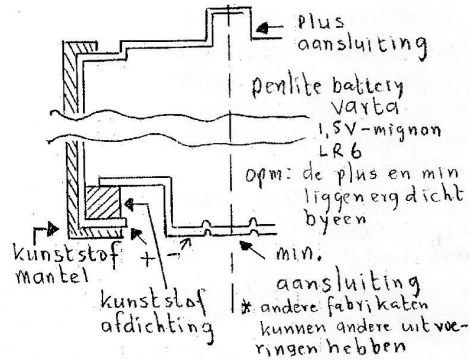 plus
aansluiting
penlite battery
Varta
1,5V-mignon
LR6
opm: de plus en min
liggen erg dicht
byeen
kunststof
mantel
+ -
kunststof
afdichting
min.
aansluiting
* andere fabrikaten
kunnen andere uitvoe-
ringen hebben